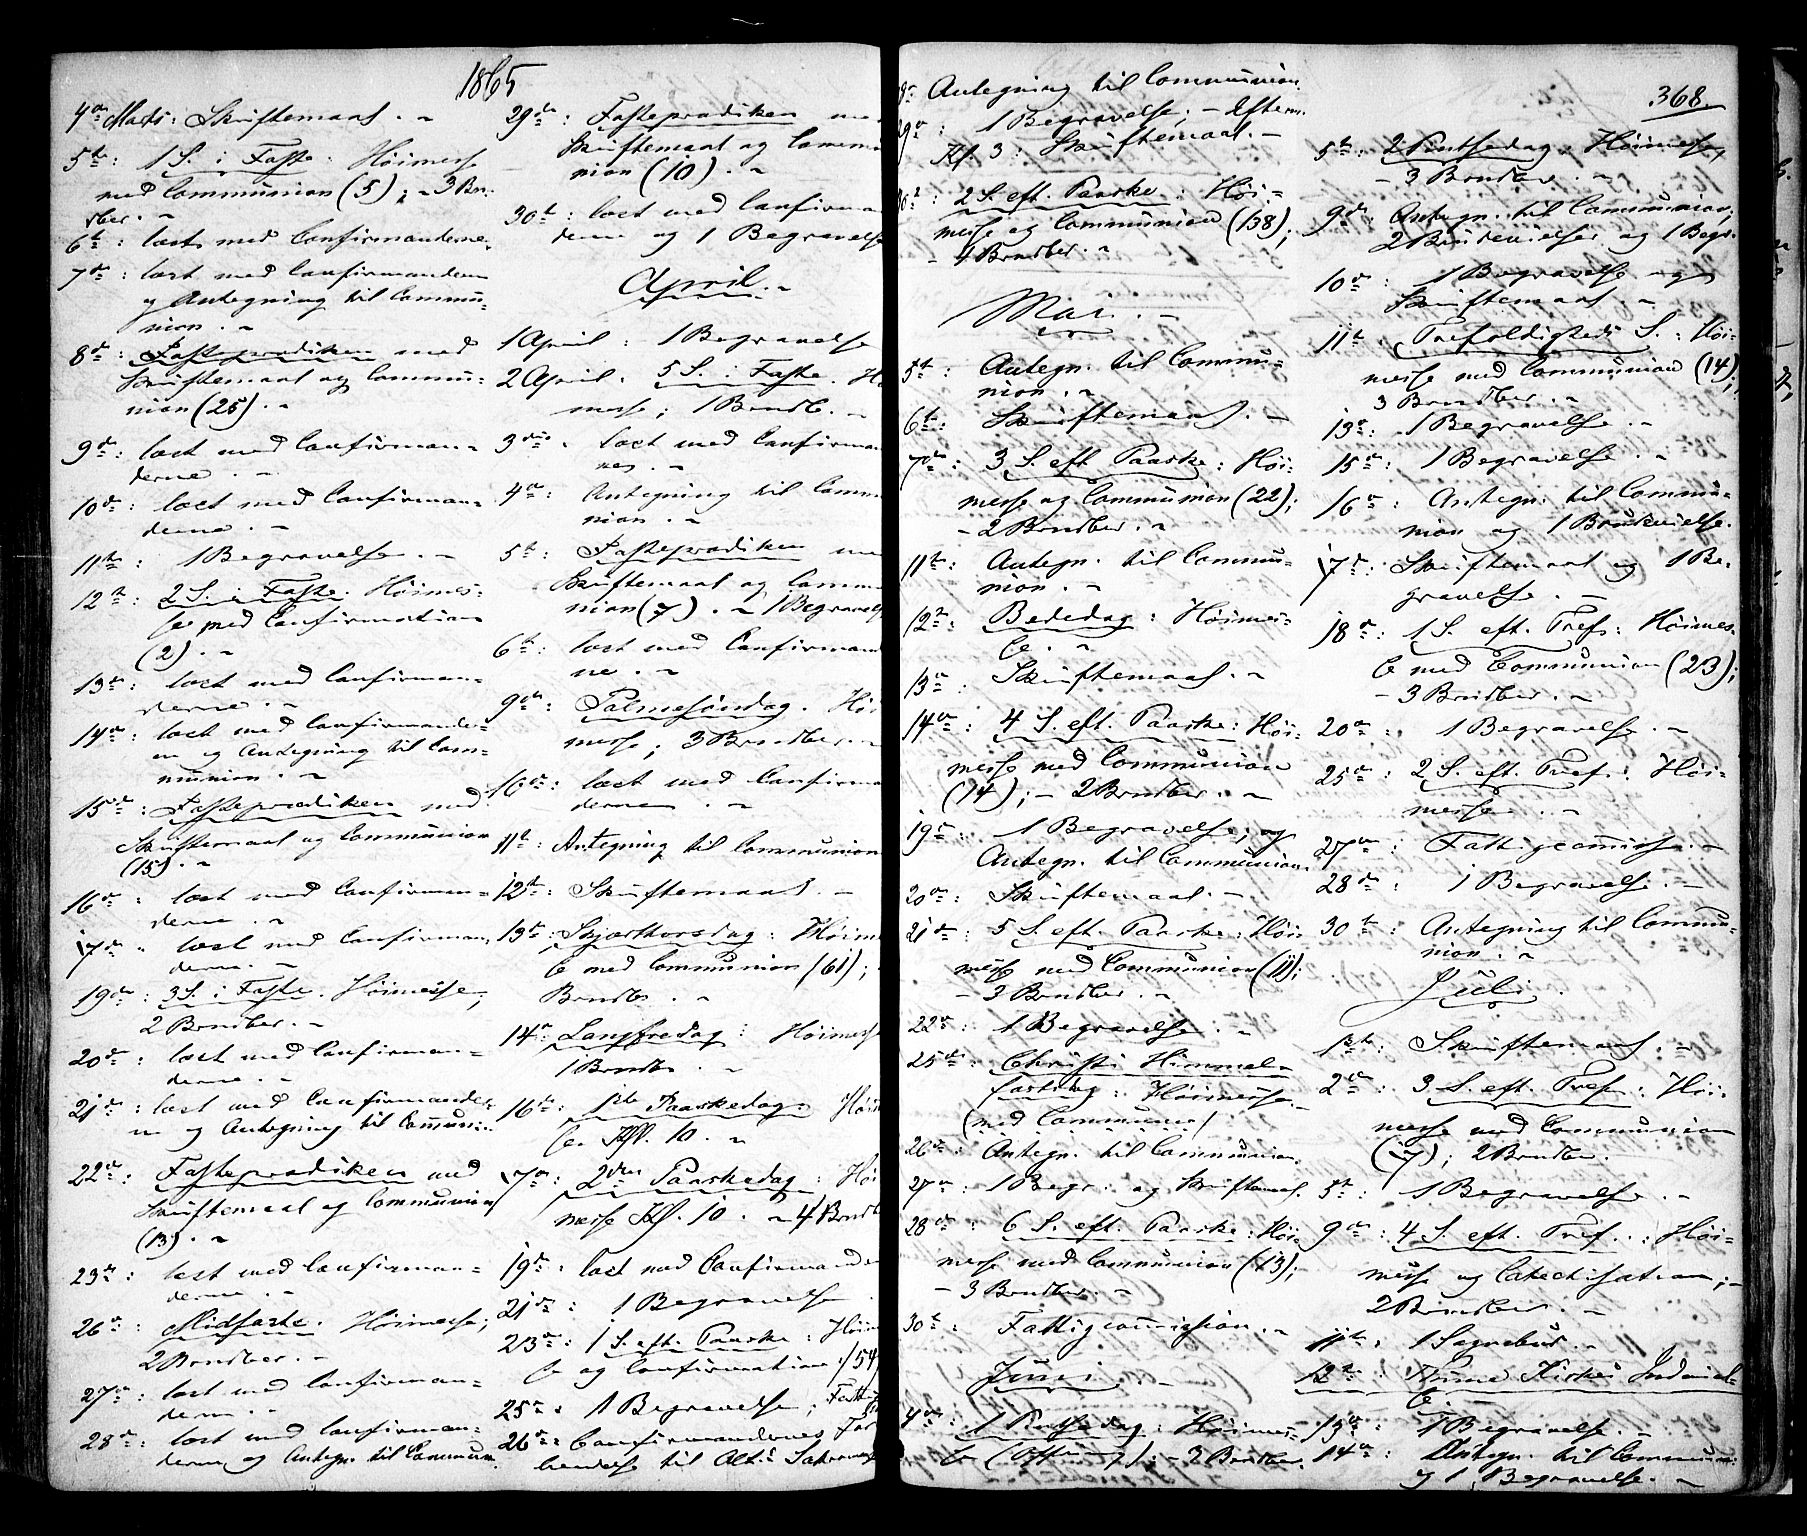 1865
4de Marts: Skriftemaal. -
5te: 1 S. i Faste: Höimesse
med Communion (5); - 3 Brn.
dber. -
6te: læst med Confirmanderne.
7de: læst med Confirmanderne
og Antegning til Commu-
nion. -
8de: Fasteprædiken med
Skriftemaal og Commu-
nion (25). -
9de: læst med Confirman-
derne. -
10de: læst med Confirman-
derne. -
11te: 1 Begravelse. -
12te: 2 S. i Faste. Höimes-
se med Confirmation
(2). -
13de: læst med Confirman-
derne. -
14de: læst med Confirmander-
ne og Antegning til Com-
munion. -
15de: Fasteprædiken med
Skriftemaal og Communion
(15). -
16de: læst med Confirman-
derne. -
17de: læst med Confirman-
derne. -
19de: 3 S. i Faste. Höimesse;
2 Brndber. -
20de: læst med Confirman-
derne. -
21de: læst med Confirmander-
ne og Antegning til Communi-
22de: Fasteprædiken med
Skriftemaal og Communion
(13). -
23de: læst med Confirman-
derne. -
26de: Midfaste. Höimesse;
2 Brndber. -
27de: læst med Confirman-
derne. -
28de: læst med Confirman-
derne og Antegn. til Commun.
29de: Fasteprædiken me
Skriftemaal og Commu
nion (10). -
30te: læst med Confirman
derne og 1 Begravelse
April. -
1 April: 1 Begravelse
2 April: 5 S. i Faste. H
messe; 1 Brndb. -
3die: læst med Confirma
nes. -
4de: Antegning til Comm
nion. -
5te: Fasteprædiken me
Skriftemaal og Comm
nion (7). - 1 Begravels
6te: læst med Confirmand
ne. -
9de: Palmesöndag. Höi
messe; 3 Brndber. -
10de: læst med Confirma
derne. -
11te: Antegning til Communion
12te: Skriftemaal. -
13de: Skjærthorsdag: Höimes
se med Communion (61);
Brndb. -
14de: Langfredag: Höimesse
1 Brndb. -
16de: 1ste Paaskedag: Höim
se Kl. 10. -
17de: 2den Paaskedag: Höi
messe Kl. 10. - 4 Brndb
19de: læst med Confirmande
21de: 1 Begravelse
23de: 1 S. eft. Paaske: Höim
se og Confirmation: (54
25de: 1 Begravelse; Fattig
26de: Confirmandernes For
beredelse til Alt: Sakram
8de Antegning til Communion.
29de: 1 Begravelse; - Efterm.
Kl. 3: Skriftemaal. -
30te: 2 S. eft. Paaske: Höi-
messe og Communion (38);
- 4 Brndber. -
Mai. -
5te: Antegn. til Commu-
nion. -
6te: Skriftemaal. -
7de: 3 S. eft. Paaske: Höi-
messe og Communion (22);
- 2 Brndber. -
11te: Antegn. til Commu-
nion. -
12te: Bededag: Höimes-
se. -
13de: Skriftemaal. -
14de: 4 S. eft. Paaske: Höi-
messe med Communion
(14); - 2 Brndber. -
19de: 1 Begravelse; og
Antegn. til Communion.
20de: Skriftemaal. -
21de: 5 S. eft. Paaske: Höi-
messe med Communion (11);
- 3 Brndber. -
22de: 1 Begravelse. -
25de: Christi Himmel-
fartsdag: Höimesse. -
(med Communion)
26de: Antegn. til Communion.
27de: 1 Begr: og Skriftemaal.
28de: 6 S. eft. Paaske: Höi-
messe med Communion (13);
- 3 Brndber. -
30te: Fattigcommission. -
Juni. -
4de: 1 Pintsedag: Höimes-
se (Offring); - 3 Brndber.
368
5te: 2 Pintsedag: Höimesse,
- 3 Brndber. -
9de: Antegn. til Communion;
2 Brudevielser og 1 Begr.
10de: 1 Begravelse og
Skriftemaal. -
11te: Trefoldigheds S.: Höi-
messe med Communion (14);
3 Brndber. -
13de: 1 Begravelse. -
15de: 1 Begravelse. -
16de: Antegn. til Commu-
nion og 1 Brudevielse.
17de: Skriftemaal og 1 Be-
gravelse. -
18de: 1 S. eft. Tref.: Höimes-
se med Communion (23);
- 3 Brndber. -
20de: 1 Begravelse. -
25de: 2 S. eft. Tref.: Höi-
messe. -
27de: Fattigcommiss. -
28de: 1 Begravelse. -
30te: Antegning til Commu-
nion. -
Juli.
1ste: Skriftemaal. -
2den: 3 S. eft. Tref.: Höi-
messe med Communion
(17); 2 Brndber.
5te: 1 Begravelse. -
9de: 4 S. eft. Tref.: Höi-
messe og Catechisation; -
2 Brndber. -
11te: 1 Sognebud. -
12te: Kirkes Indviel-
se. -
13de: 1 Begravelse. -
14de: Antegn. til Commun:
og 1 Begravelse. -